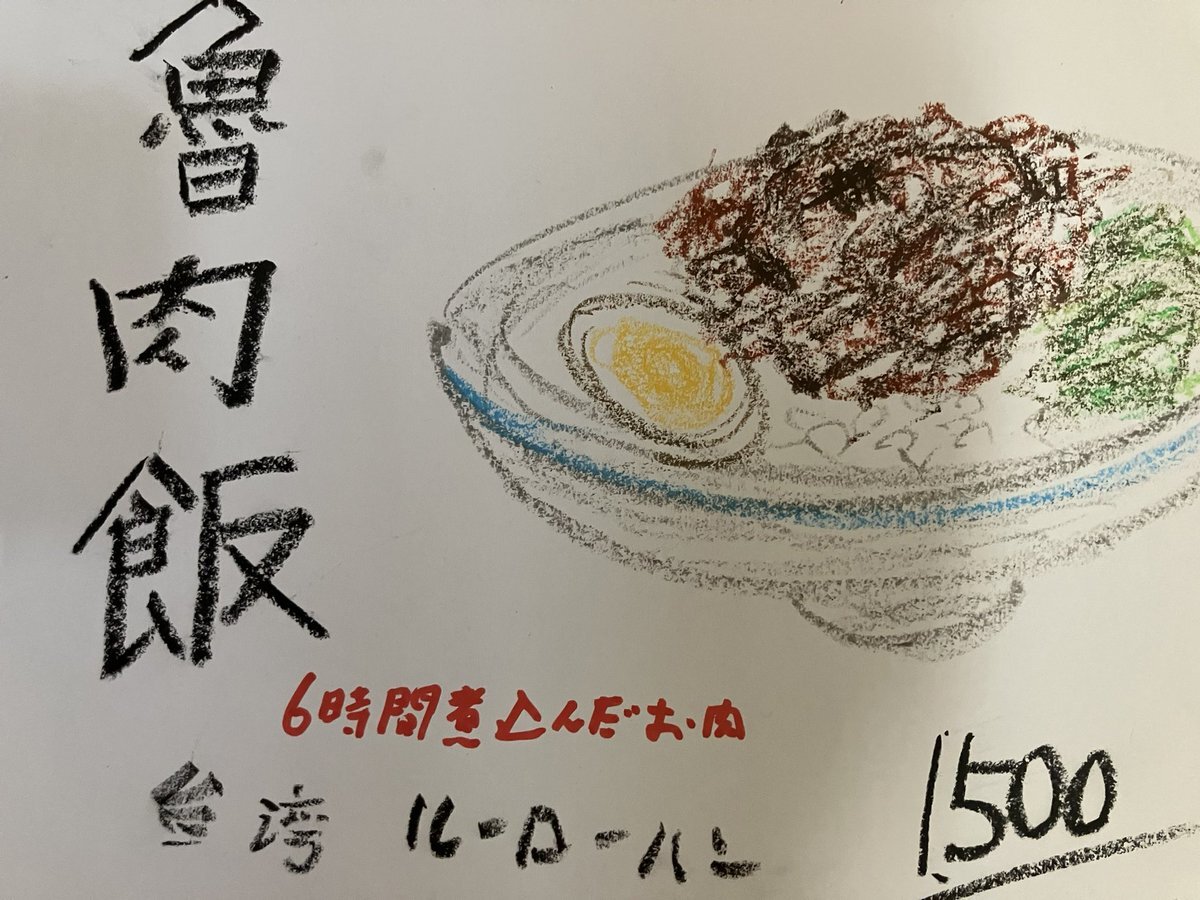 魯肉飯
6時間煮込んだお肉
台湾 ルーローハン
1500